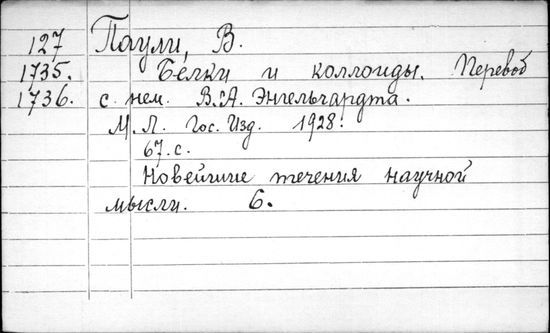 127 Паули, В.
1735. Белки и коллоиды. Перевод
1736. с нем. В.А. Энгельгардта.
М. Л. Гос. Изд. 1928.
67. с.
Новейшие течения научной
мысли. 6.